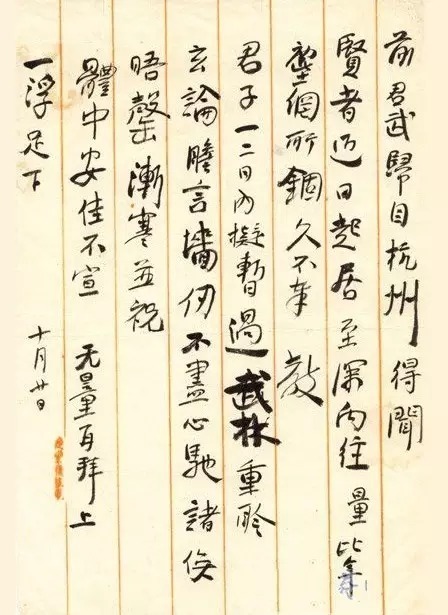 前君武歸自杭州得聞
賢者近日起居至深向往量比年
塵網所錮久不奉教
君子一二日內擬暫過武林重聆
玄論瞻言墻仞不盡心馳諸俟
晤罄漸寒並祝
體中安佳不宣 无量再拜上
一浮足下
十月廿日